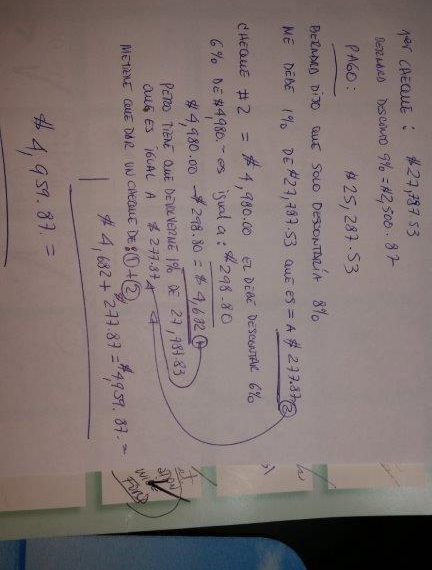 1er CHEQUE: $27,787.53
BERNARD DESCONTÓ 9% = $2,500.87
PAGO: $25,287.53
BERNARD DIJO QUE SOLO DESCONTARÍA 8%
ME DEBE 1% DE $27,787.53 QUE ES = A $277.87 ②
CHEQUE #2 = $4,980.00 EL DEBE DESCONTAR 6%
6% DE $4,980.- es igual a: $298.80
$4,980.00 - $298.80 = $4,682 ①
PERO TIENE QUE DEVOLVERME 1% DE 27,787.53
QUE ES IGUAL A $277.87
ME TIENE QUE DAR UN CHEQUE DE: ① + ②
$4,682 + 277.87 = $4,959.87.=
$4,959.87.=